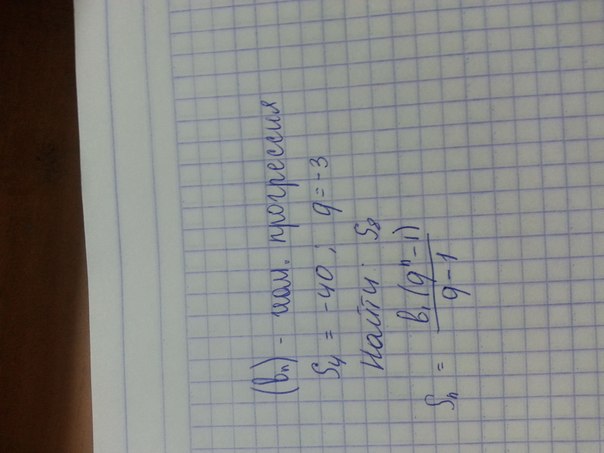 (bₙ) - геом. прогрессия
S₄ = -40; q = -3
Найти: S₈
Sₙ = b₁(qⁿ-1) / q-1